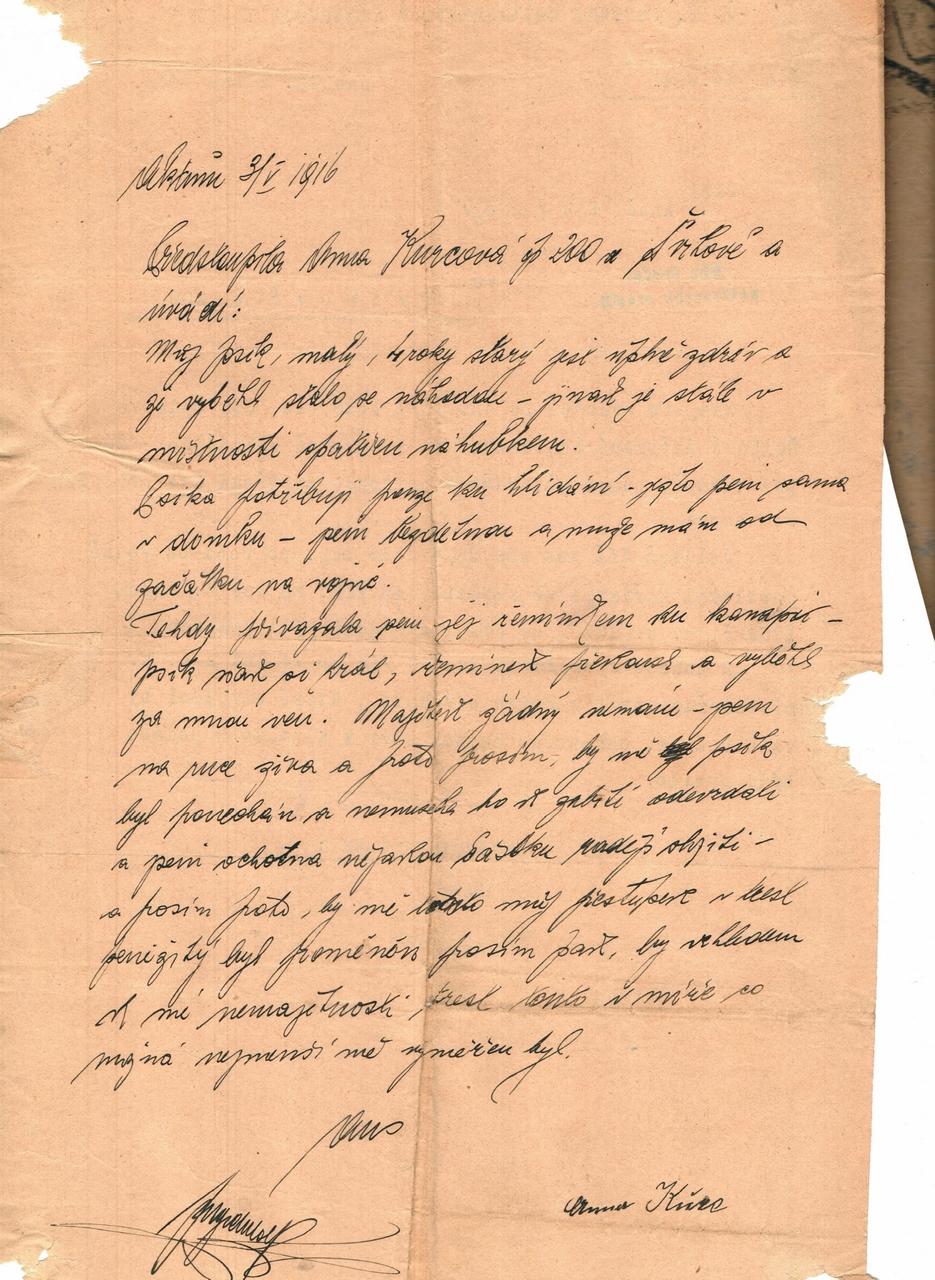 3/V 1916
Předstoupila Anna Kurcová čp 200 z a
úvádí:
Můj psík, malý, 4 roky starý jest úplně zdráv a
že vyběhl stalo se náhodou – jinak je stále v
místnosti opatřen náhubkem.
Psíka potřebuji pouze ku hlídání – jsem sama
v domku – jsem bezdětnou a muže mám od
začátku na vojně.
Tehdy přivázala jsem jej řemínkem ku kanapi –
psík však si hrál, řemínek překousl a vyběhl
za mnou ven. Majetek žádný nemám – jsem
na ruce živa a proto prosím, by mě psík
byl ponechán a nemusela ho k zabití odevzdati
a jsem ochotna nějakou částku raději složiti –
a prosím proto, by mě tento můj přestupek v trest
peněžitý byl proměněn prosím pak, by vzhledem
k mé nemajetnosti trest tento v míře co
možná nejmenší mě vyměřen byl.
Anna Kurc